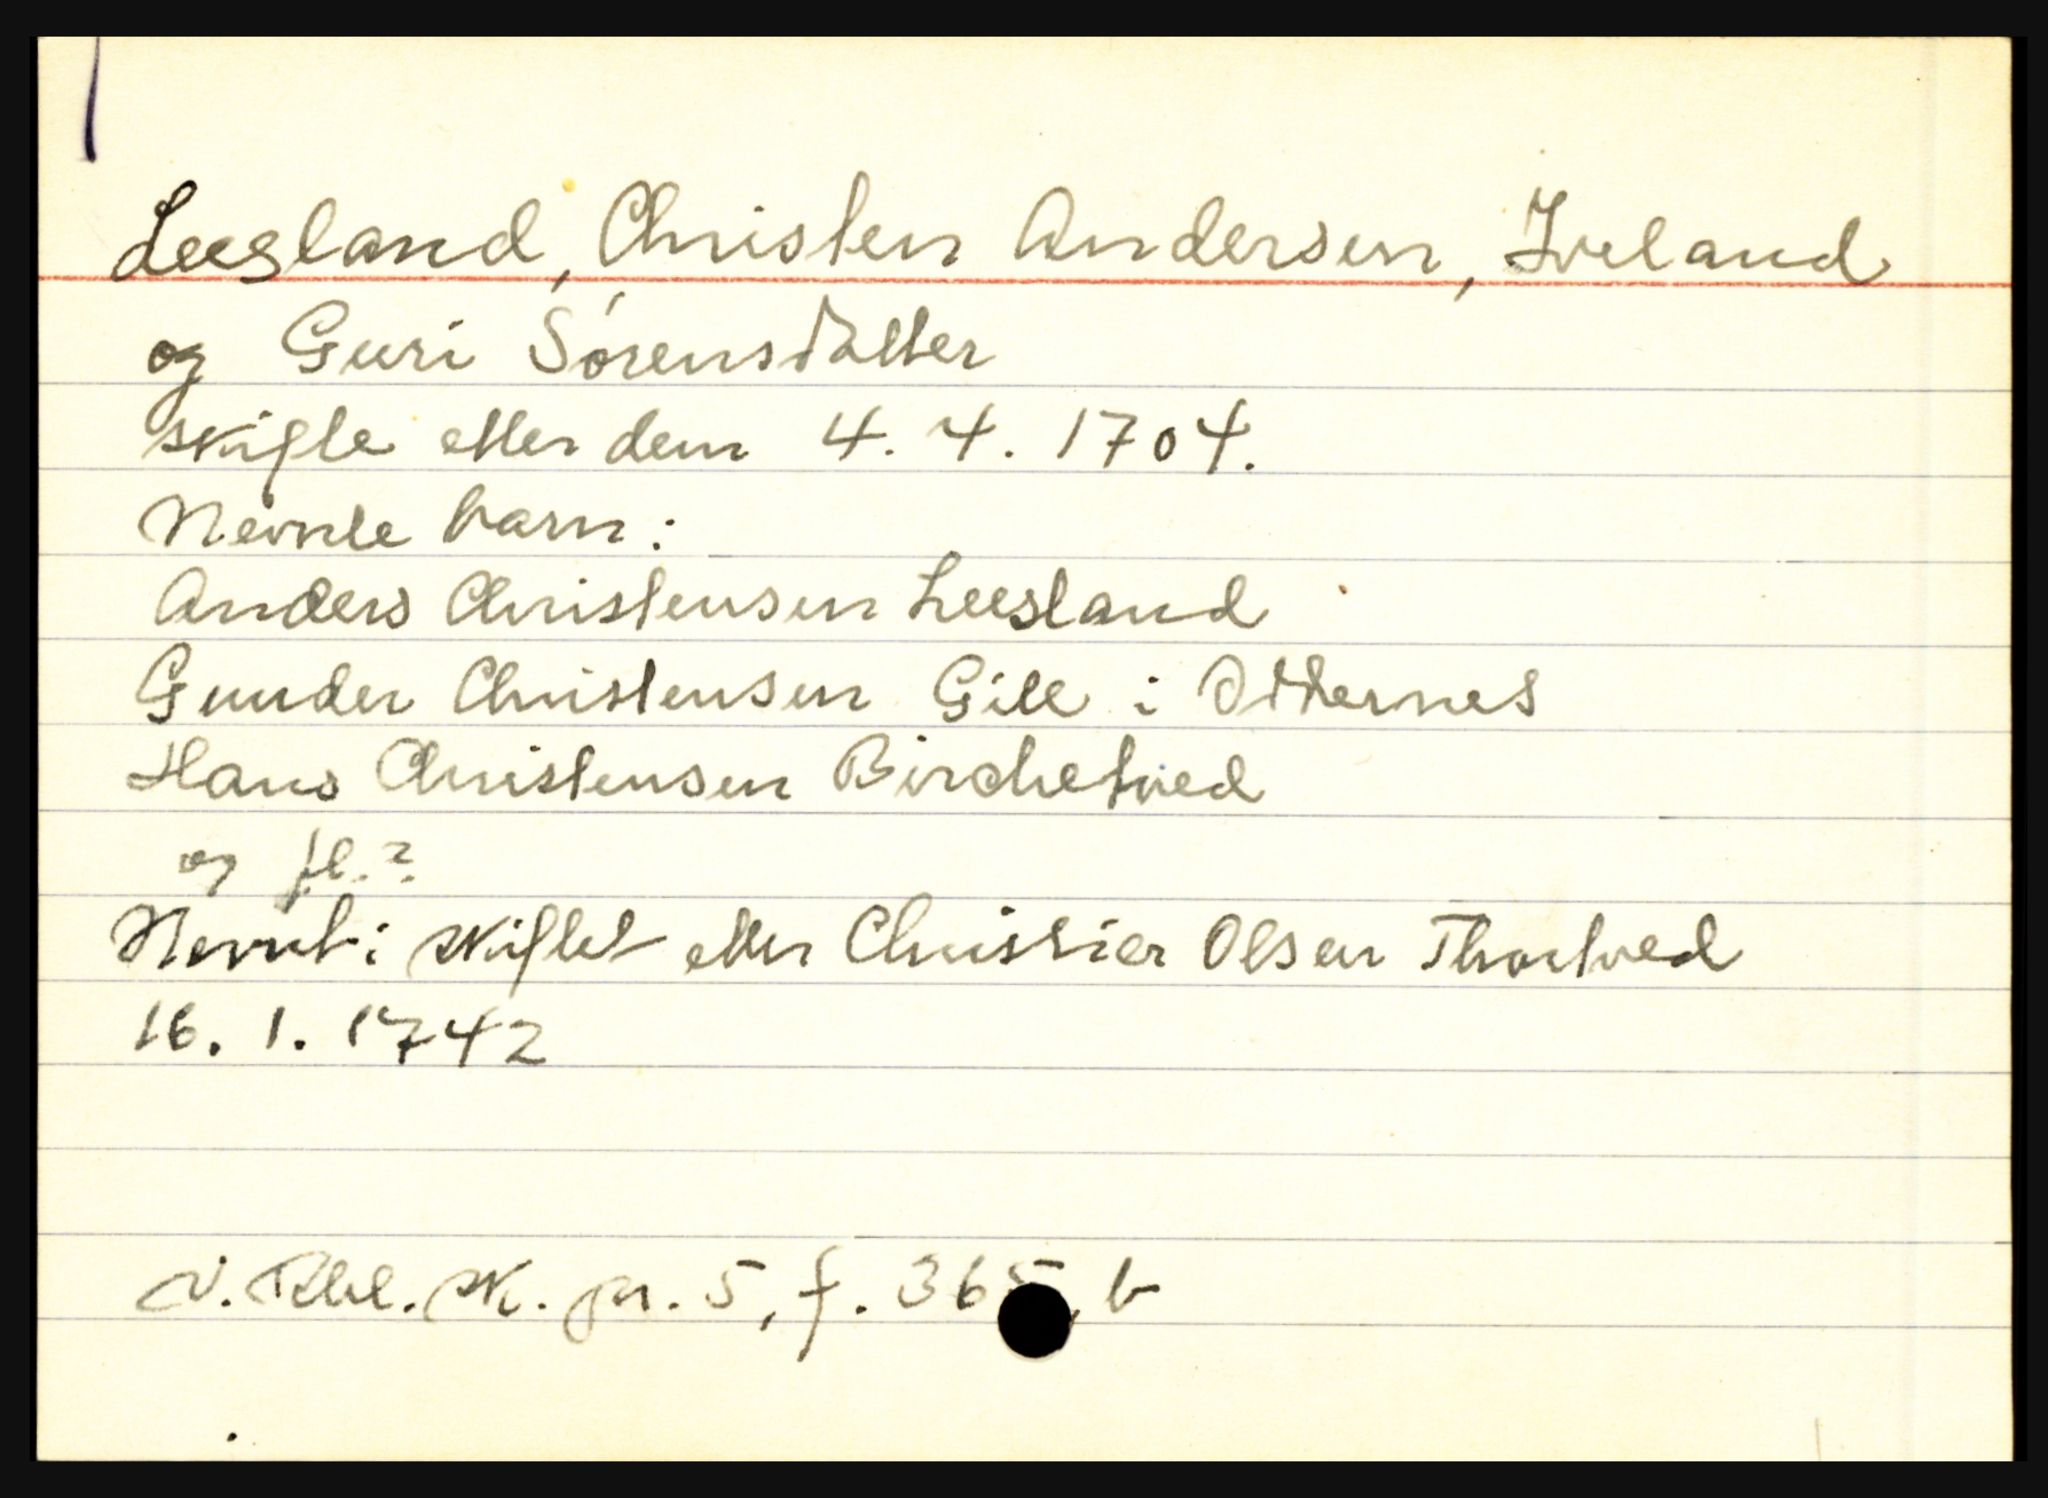 Leesland, Christen Andersen, Iveland
og Guri Sørensdatter
skifte etter dem 4. 4. 1704.
Nevnte barn:
Anders Christensen Leesland
Gunder Christensen Gill i Otternes
Hans Christensen Birchetved
og fl.?
Nevnt i skiftet etter Christier Olsen Thortved
16. 1. 1742
N. Rbl. sk. pr. 5, f. 365, b